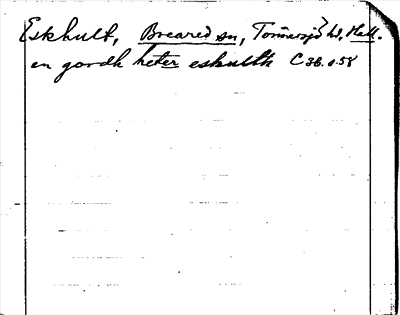 Eskhult, Breared sn, Tönnersjö hd, Hall.
en gordh heter eskultth C 38. s. 58